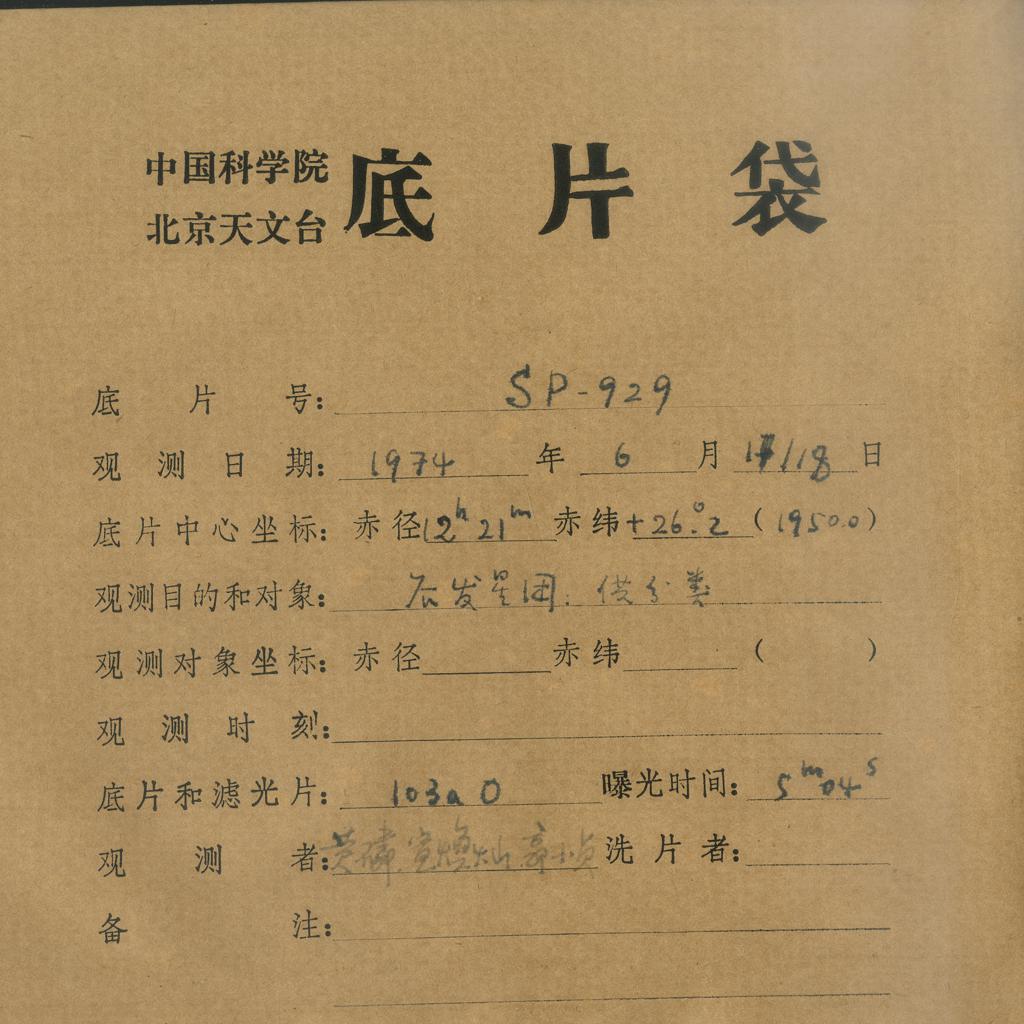 中国科学院
北京天文台 底片袋
底片号: SP-929
观测日期: 1974年6月17/18日
底片中心坐标: 赤径12h21m赤纬+26°.2(1950.0)
观测目的和对象: 后发星团: 供分类
观测对象坐标: 赤径 赤纬 ( )
观测时刻:
底片和滤光片: 103aO 曝光时间: 5m04s
观测者: 黄磷 洗片者:
备注: